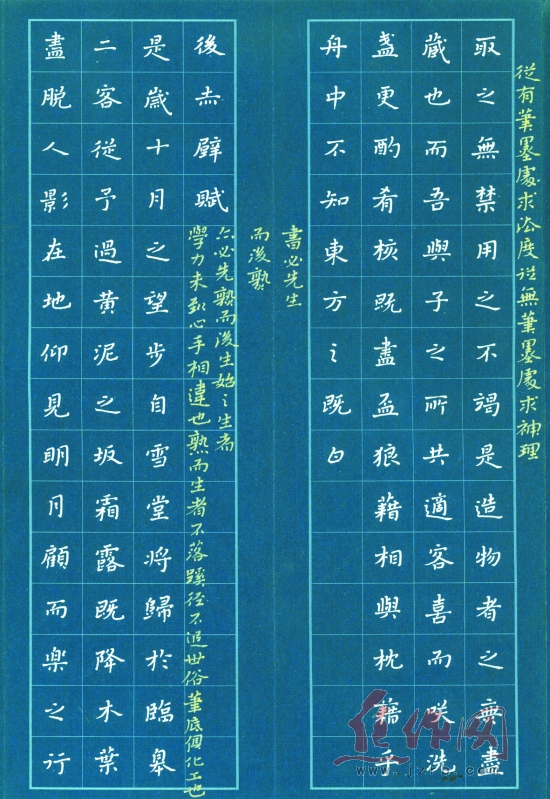 從有筆墨處求法度從無筆墨處求神理
取之無禁用之不竭是造物者之無盡
藏也而吾與子之所共適客喜而咲洗
盞更酌肴核既盡盃狼藉相與枕藉乎
舟中不知東方之既白
書必先生
而後熟
後赤壁賦
亦必先熟而後生始之生者
學力未到心手相違也熟而生者不落蹊徑不追世俗筆底個化工也
是歲十月之望步自雪堂將歸於臨皋
二客從予過黃泥之坂霜露既降木葉
盡脫人影在地仰見明月顧而樂之行
焦作网
www.jzrb.com